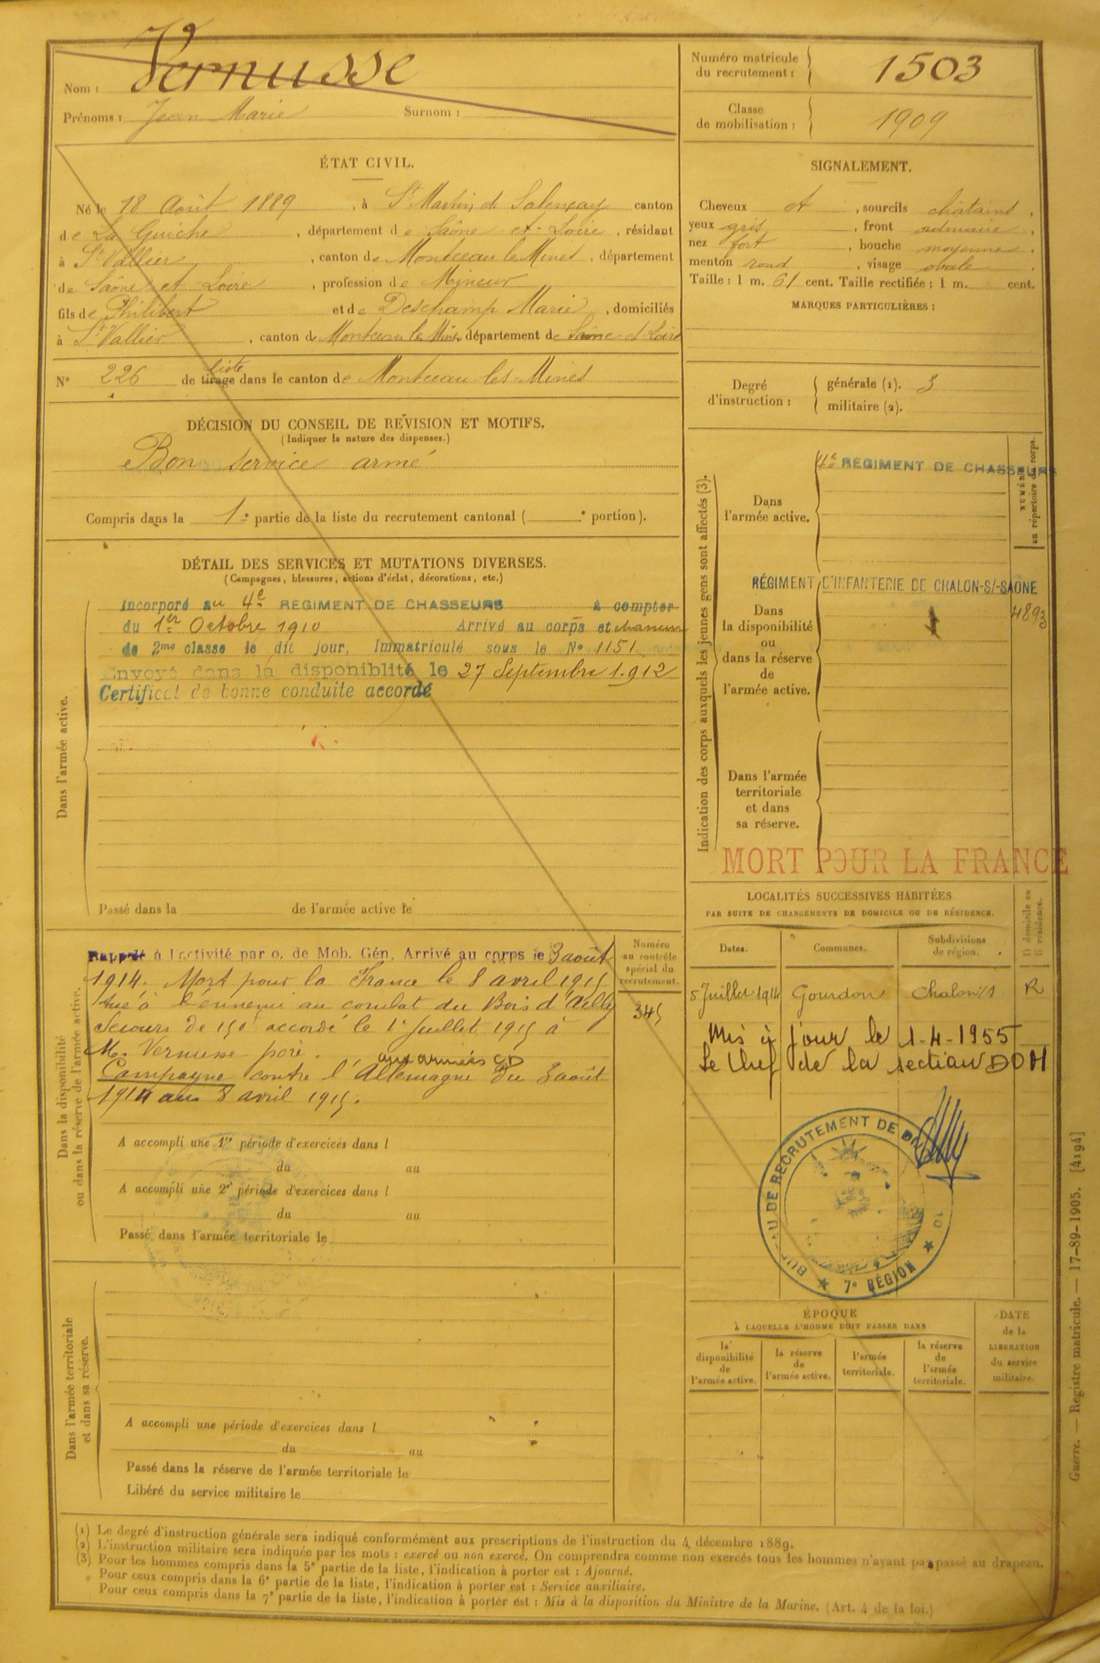 Nom : Vernusse
Prénoms : Jean Marie Surnom :
Numéro matricule
du recrutement : 1503
Classe
de mobilisation : 1909
ÉTAT CIVIL.
Né le 18 Août 1889, à St Martin d Salencay canton
de La Guiche, département de Saône et-Loire, résidant
à St Vallier, canton de Montceau le Mines, département
de Saône et Loire, profession de Mineur
fils de Philibert et de Deschamp Marie, domiciliés
à St Vallier, canton de Montceau les Mines département de Saône et Loire
N° 226 de tirage liste dans le canton de Montceau les Mines
SIGNALEMENT.
Cheveux et, sourcils chatains,
yeux gris, front ordinaire,
nez fort, bouche moyenne,
menton rond, visage ovale
Taille : 1 m. 61 cent. Taille rectifiée : 1 m. cent.
MARQUES PARTICULIÈRES :
Degré
d'instruction :
générale (1). 3
militaire (2).
DÉCISION DU CONSEIL DE RÉVISION ET MOTIFS.
(Indiquer la nature des dispenses.)
Bon service armé
Compris dans la 1e partie de la liste du recrutement cantonal ( e portion).
DÉTAIL DES SERVICES ET MUTATIONS DIVERSES.
(Campagnes, blessures, actions d'éclat, décorations, etc.)
Dans l'armée active.
Incorporé au 4e REGIMENT DE CHASSEURS à compter
du 1er Octobre 1910 Arrivé au corps et chasseur
de 2me classe le dit jour, Immatriculé sous le N° 1151
Envoyé dans la disponibilité le 27 Septembre 1912
Certificat de bonne conduite accordé
Passé dans la de l'armée active le
Indication des corps auxquels les jeunes gens sont affectés (3).
NUMÉRO
au répertoire du corps.
Dans
l'armée active.
4e REGIMENT DE CHASSEURS
RÉGIMENT D'INFANTERIE DE CHALON-S/-SAÔNE
4893
Dans
la disponibilité
ou
dans la réserve
de
l'armée active.
Dans l'armée
territoriale
et dans
sa réserve.
MORT POUR LA FRANCE
LOCALITÉS SUCCESSIVES HABITÉES
PAR SUITE DE CHANGEMENTS DE DOMICILE OU DE RÉSIDENCE.
Dates. Communes. Subdivisions
de région.
D domicile ou
R résidence.
5 Juillet 1914 Gourdon Chalon s/s R
Mis à jour le 1-4-1955
Le Chef de la section DOM
BUREAU DE RECRUTEMENT DE
7e RÉGION
Dans la disponibilité
ou dans la réserve de l'armée active.
Numéro
au contrôle
spécial du
recrutement.
345
Rappelé à l'activité par o. de Mob. Gén. Arrivé au corps le 3 août
1914. Mort pour la France le 8 avril 1915
tué à l'ennemi au combat du Bois d'Ailly
Secours de 150 accordé le 1er Juillet 1915 à
M. Vernusse père.
aux armées CD
Campagne contre l'Allemagne du 3 août
1914 au 8 avril 1915.
A accompli une 1re période d'exercices dans l
du au
A accompli une 2e période d'exercices dans l
du au
Passé dans l'armée territoriale le
Dans l'armée territoriale
et dans sa réserve.
A accompli une période d'exercices dans l
du au
Passé dans la réserve de l'armée territoriale le
Libéré du service militaire le
ÉPOQUE
À LAQUELLE L'HOMME DOIT PASSER DANS
la
disponibilité
de
l'armée active.
la réserve
de
l'armée active.
l'armée
territoriale.
la réserve
de
l'armée
territoriale.
DATE
de la
LIBÉRATION
du service
militaire.
(1) Le degré d'instruction générale sera indiqué conformément aux prescriptions de l'instruction du 4 décembre 1889.
(2) L'instruction militaire sera indiquée par les mots : exercé ou non exercé. On comprendra comme non exercés tous les hommes n'ayant pas passé au drapeau.
(3) Pour les hommes compris dans la 5e partie de la liste, l'indication à porter est : Ajourné.
Pour ceux compris dans la 6e partie de la liste, l'indication à porter est : Service auxiliaire.
Pour ceux compris dans la 7e partie de la liste, l'indication à porter est : Mis à la disposition du Ministre de la Marine. (Art. 4 de la loi.)
Guerre. — Registre matricule. — 17-89-1905. [4194]